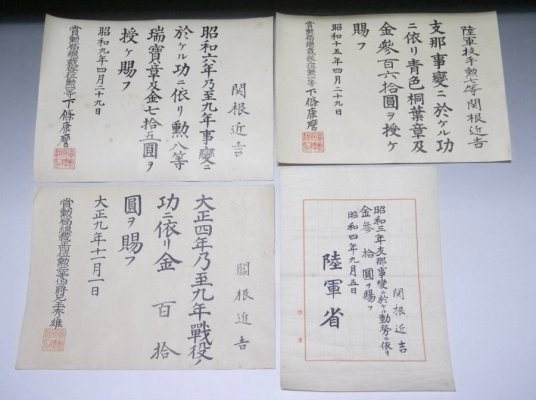 陸軍技手勲七等 関根近吉
支那事變ニ於ケル功
ニ依リ青色桐葉章及
金參百六拾圓ヲ授ケ
賜フ
昭和十五年四月二十九日
賞勲局總裁 下條康麿
関根近吉
昭和六年乃至九年事變ニ
於ケル功ニ依リ勲八等
瑞寶章及金七拾五圓ヲ
授ケ賜フ
昭和九年四月二十九日
賞勲局總裁 下條康麿
関根近吉
昭和三年支那事變ニ於ケル勤勞ニ依リ
金參拾圓ヲ賜フ
昭和四年九月五日
陸軍省
關根近吉
大正四年乃至九年戰役ノ
功ニ依リ金百拾
圓ヲ賜フ
大正九年十一月一日
賞勲局總裁 伯爵兒玉秀雄